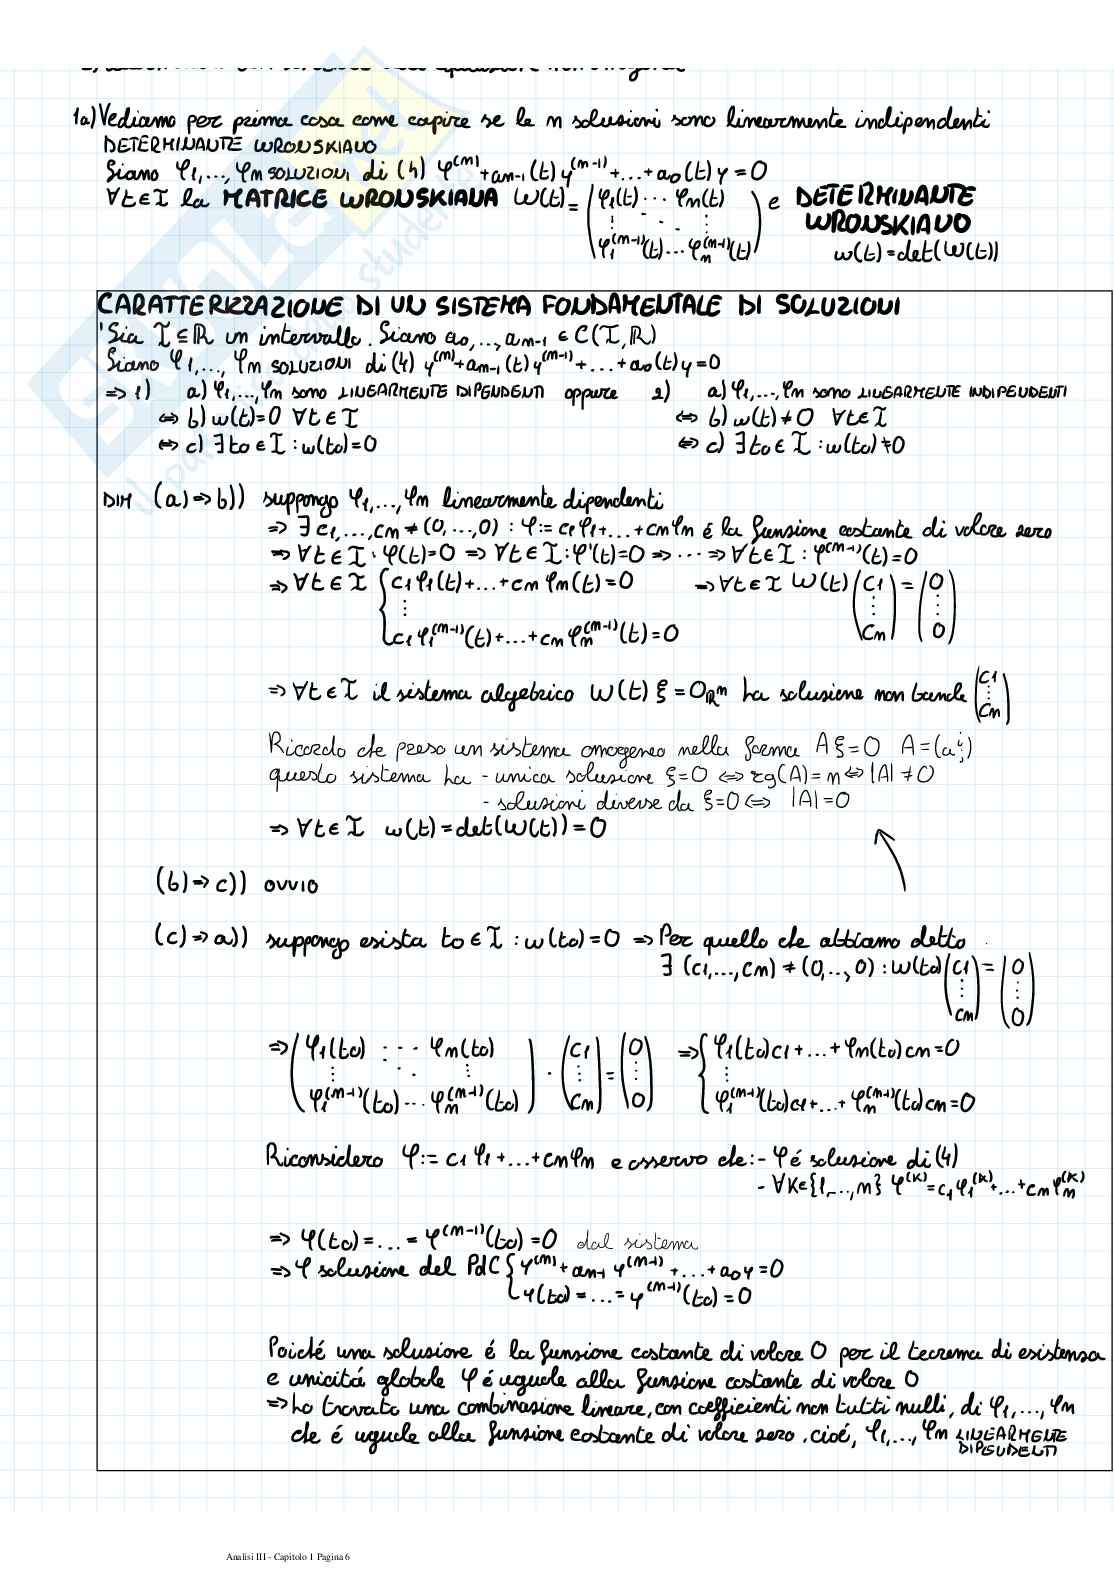 1a) Vediamo per prima cosa come capire se le n soluzioni sono linearmente indipendenti
DETERMINANTE WRONSKIANO
Siano φ1,..., φn SOLUZIONI di (4) y^(n)+an-1(t)y^(n-1)+...+a0(t)y=0
∀t∈I la MATRICE WRONSKIANA W(t)= (φ1(t) ... φn(t) ⋮ ⋱ ⋮ φ1^(n-1)(t)...φn^(n-1)(t)) e DETERMINANTE
WRONSKIANO
w(t)=det(W(t))
CARATTERIZZAZIONE DI UN SISTEMA FONDAMENTALE DI SOLUZIONI
'Sia I⊆ℝ un intervallo. Siano a0,..., an-1 ∈C(I,ℝ)
Siano φ1,..., φn SOLUZIONI di (4) y^(n)+an-1(t)y^(n-1)+...+a0(t)y=0
=> 1) a) φ1,..., φn sono LINEARMENTE DIPENDENTI oppure 2) a) φ1,..., φn sono LINEARMENTE INDIPENDENTI
<=> b) w(t)=0 ∀t∈I <=> b) w(t)≠0 ∀t∈I
<=> c) ∃t0∈I : w(t0)=0 <=> c) ∃t0∈I : w(t0)≠0
DIM (a)=>b)) suppongo φ1,..., φn linearmente dipendenti
=> ∃ c1,..., cn ≠(0,...,0) : φ:= c1φ1+...+cnφn é la funzione costante di valore zero
=> ∀t∈I : φ(t)=0 => ∀t∈I : φ'(t)=0 => ... => ∀t∈I : φ^(n-1)(t)=0
=> ∀t∈I { c1φ1(t)+...+cnφn(t)=0 ⋮ c1φ1^(n-1)(t)+...+cnφn^(n-1)(t)=0 => ∀t∈I W(t) (c1 ⋮ cn) = (0 ⋮ 0)
=> ∀t∈I il sistema algebrico W(t)ξ=0ℝⁿ ha soluzione non banale (c1 ⋮ cn)
Ricordo che preso un sistema omogeneo nella forma Aξ=0 A=(a^i_j)
questo sistema ha - unica soluzione ξ=0 <=> rg(A)=n <=> |A|≠0
- soluzioni diverse da ξ=0 <=> |A|=0
=> ∀t∈I w(t)=det(W(t))=0
(b)=>c)) ovvio
(c)=>a)) suppongo esista t0∈I : w(t0)=0 => Per quello che abbiamo detto
∃ (c1,...,cn)≠(0,...,0) : W(t0) (c1 ⋮ cn) = (0 ⋮ 0)
=> (φ1(t0) ... φn(t0) ⋮ ⋱ ⋮ φ1^(n-1)(t0)...φn^(n-1)(t0)) · (c1 ⋮ cn) = (0 ⋮ 0) => { φ1(t0)c1+...+φn(t0)cn=0 ⋮ φ1^(n-1)(t0)c1+...+φn^(n-1)(t0)cn=0
Riconsidero φ:= c1φ1+...+cnφn e osservo che: - φ é soluzione di (4)
- ∀K∈{1,...,n} φ^(K)=c1φ1^(K)+...+cnφn^(K)
=> φ(t0)=...=φ^(n-1)(t0)=0 dal sistema
=> φ soluzione del PdC { y^(n)+an-1 y^(n-1)+...+a0y=0
y(t0)=...=y^(n-1)(t0)=0
Poiché una soluzione é la funzione costante di valore 0 per il teorema di esistenza
e unicitá globale φ é uguale alla funzione costante di valore 0
=> ho trovato una combinazione lineare, con coefficienti non tutti nulli, di φ1,..., φn
che é uguale alla funzione costante di valore zero. cioé, φ1,..., φn LINEARMENTE
DIPENDENTI
Analisi III - Capitolo 1 Pagina 6